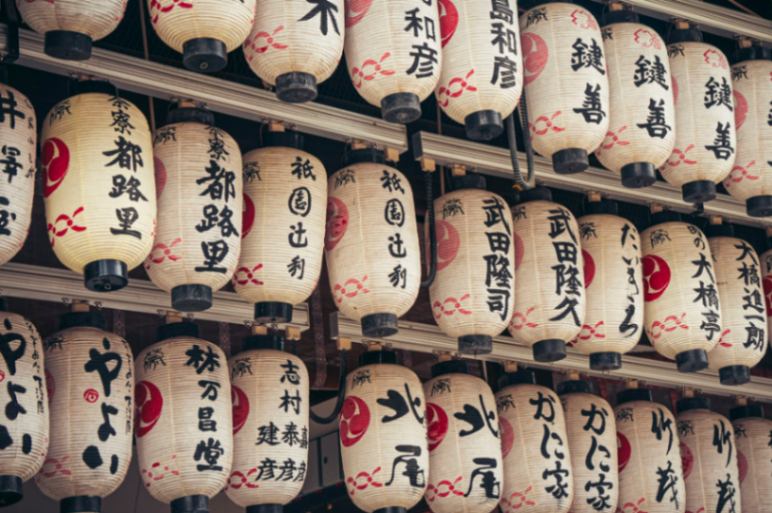 木
和彦
島和彦
鍵善
鍵善
鍵善
井澤
京都 都路里
都路里
祇園辻利
祇園辻利
武田隆司
武田隆久
の大橋亭
大橋進一郎
やよい
やよい
林万昌堂
志村
建彦
泰彦
北尾
北尾
かに家
かに家
竹茂
竹茂